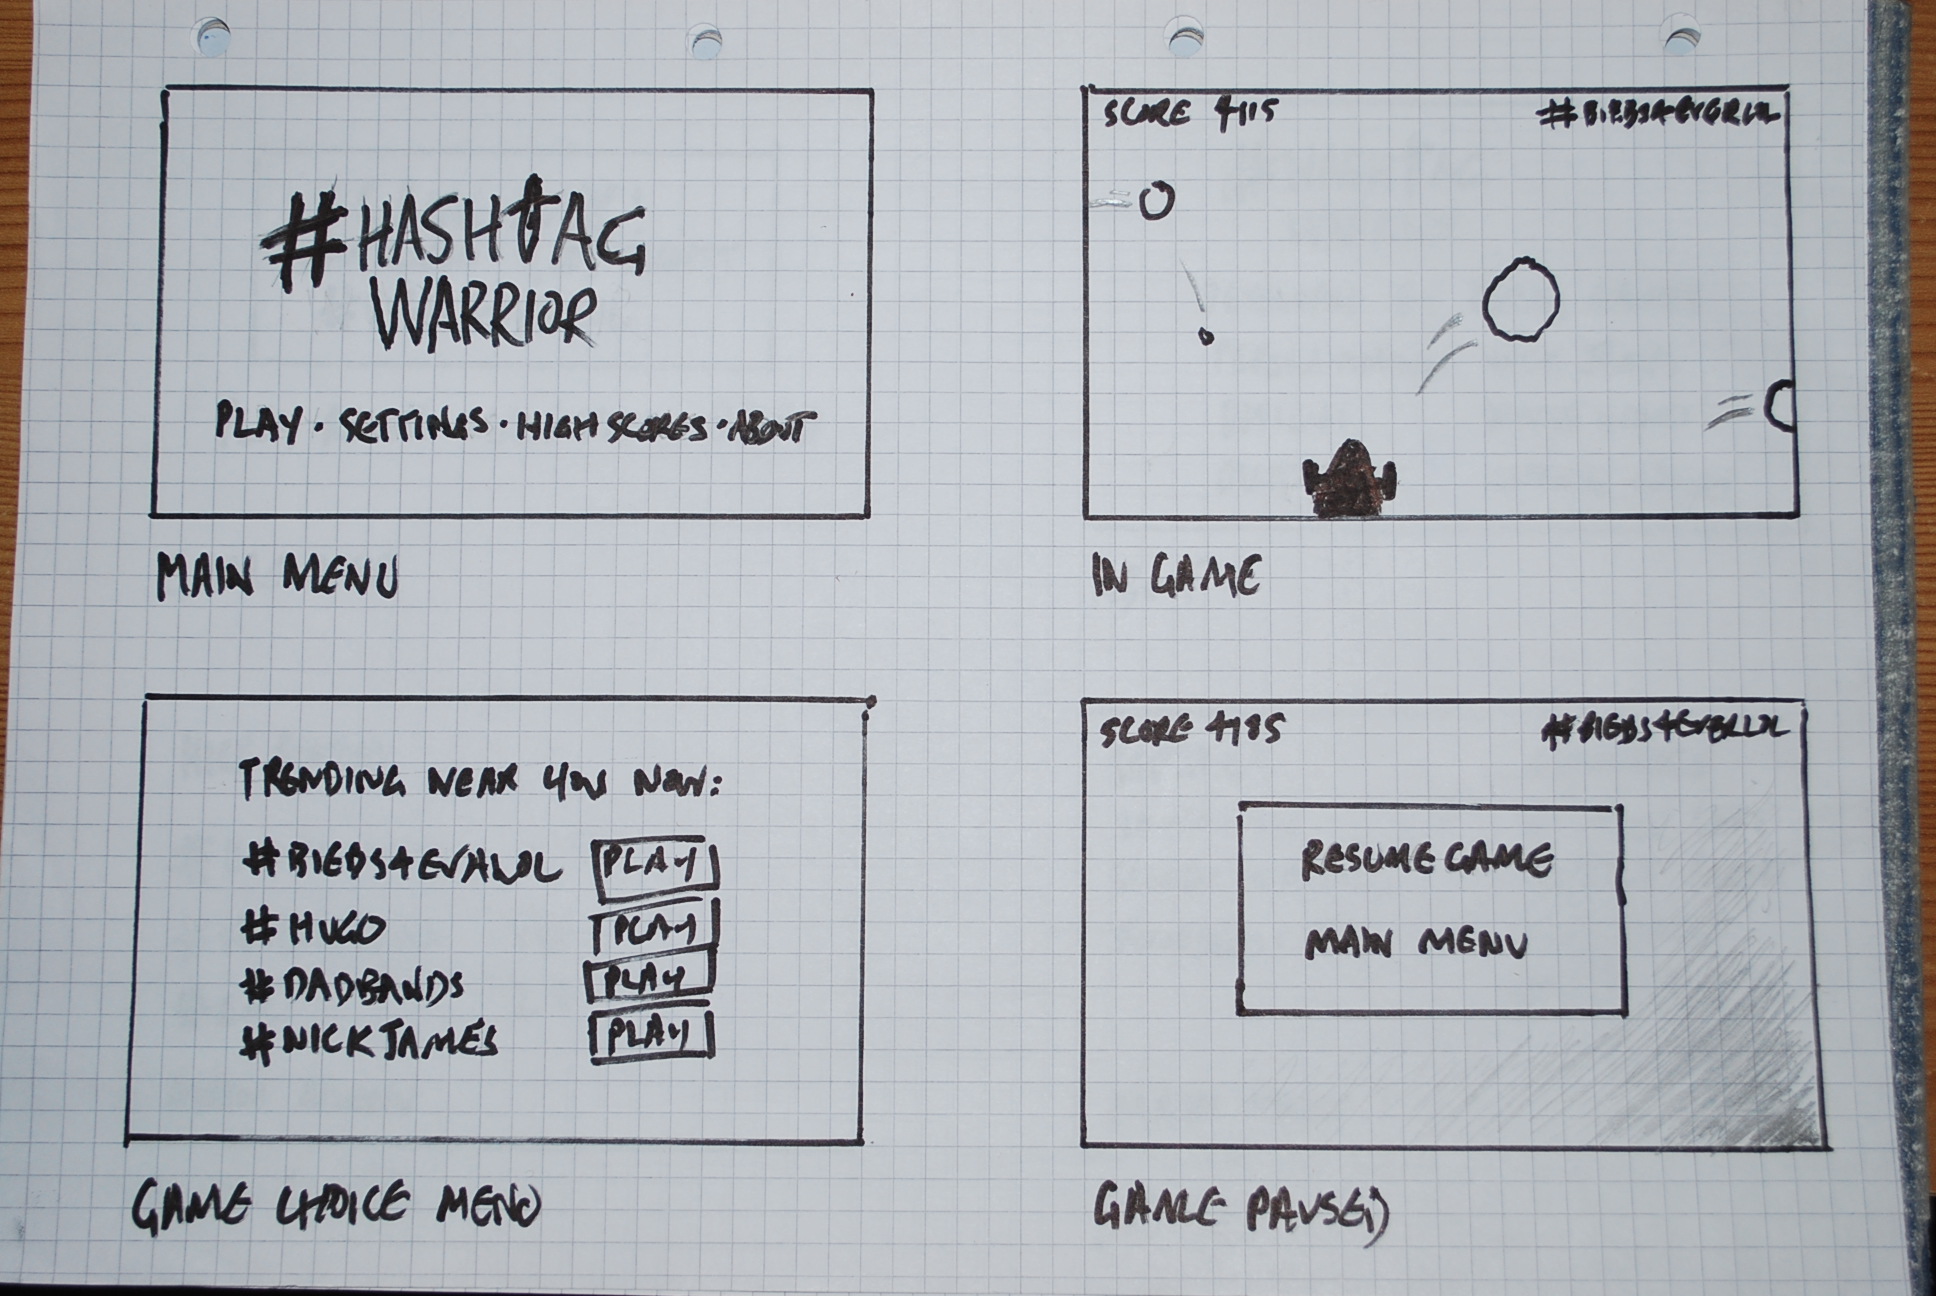 #HASHTAG
WARRIOR
PLAY · SETTINGS · HIGH SCORES · ABOUT
MAIN MENU
SCORE 4115
#BIEBS4EVERLOL
IN GAME
TRENDING NEAR YOU NOW:
#BIEBS4EVALOL PLAY
#HUGO PLAY
#DADBANDS PLAY
#NICKJAMES PLAY
GAME CHOICE MENU
SCORE 4185
#BIEBS4EVERLOL
RESUME GAME
MAIN MENU
GAME PAUSED